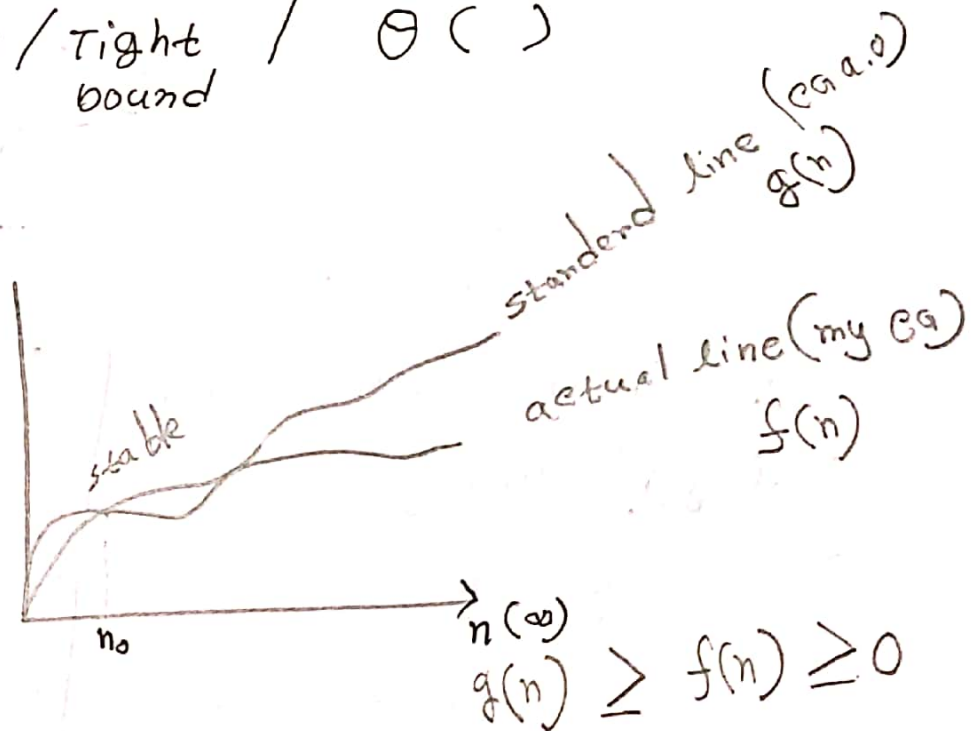 / Tight / θ ( )
bound
standerd line (eq a.0)
g(n)
actual line (my eq)
f(n)
stable
n₀
n (∞)
g(n) ≥ f(n) ≥ 0